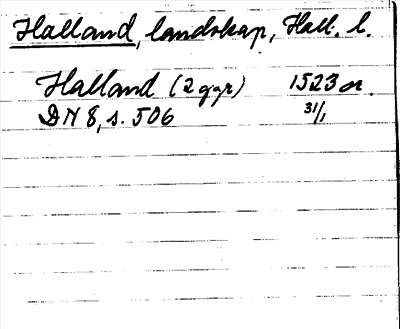 Halland, landskap, Hall. l.
Halland (2 ggr) 1523 or.
DN 8, s. 506 31/1